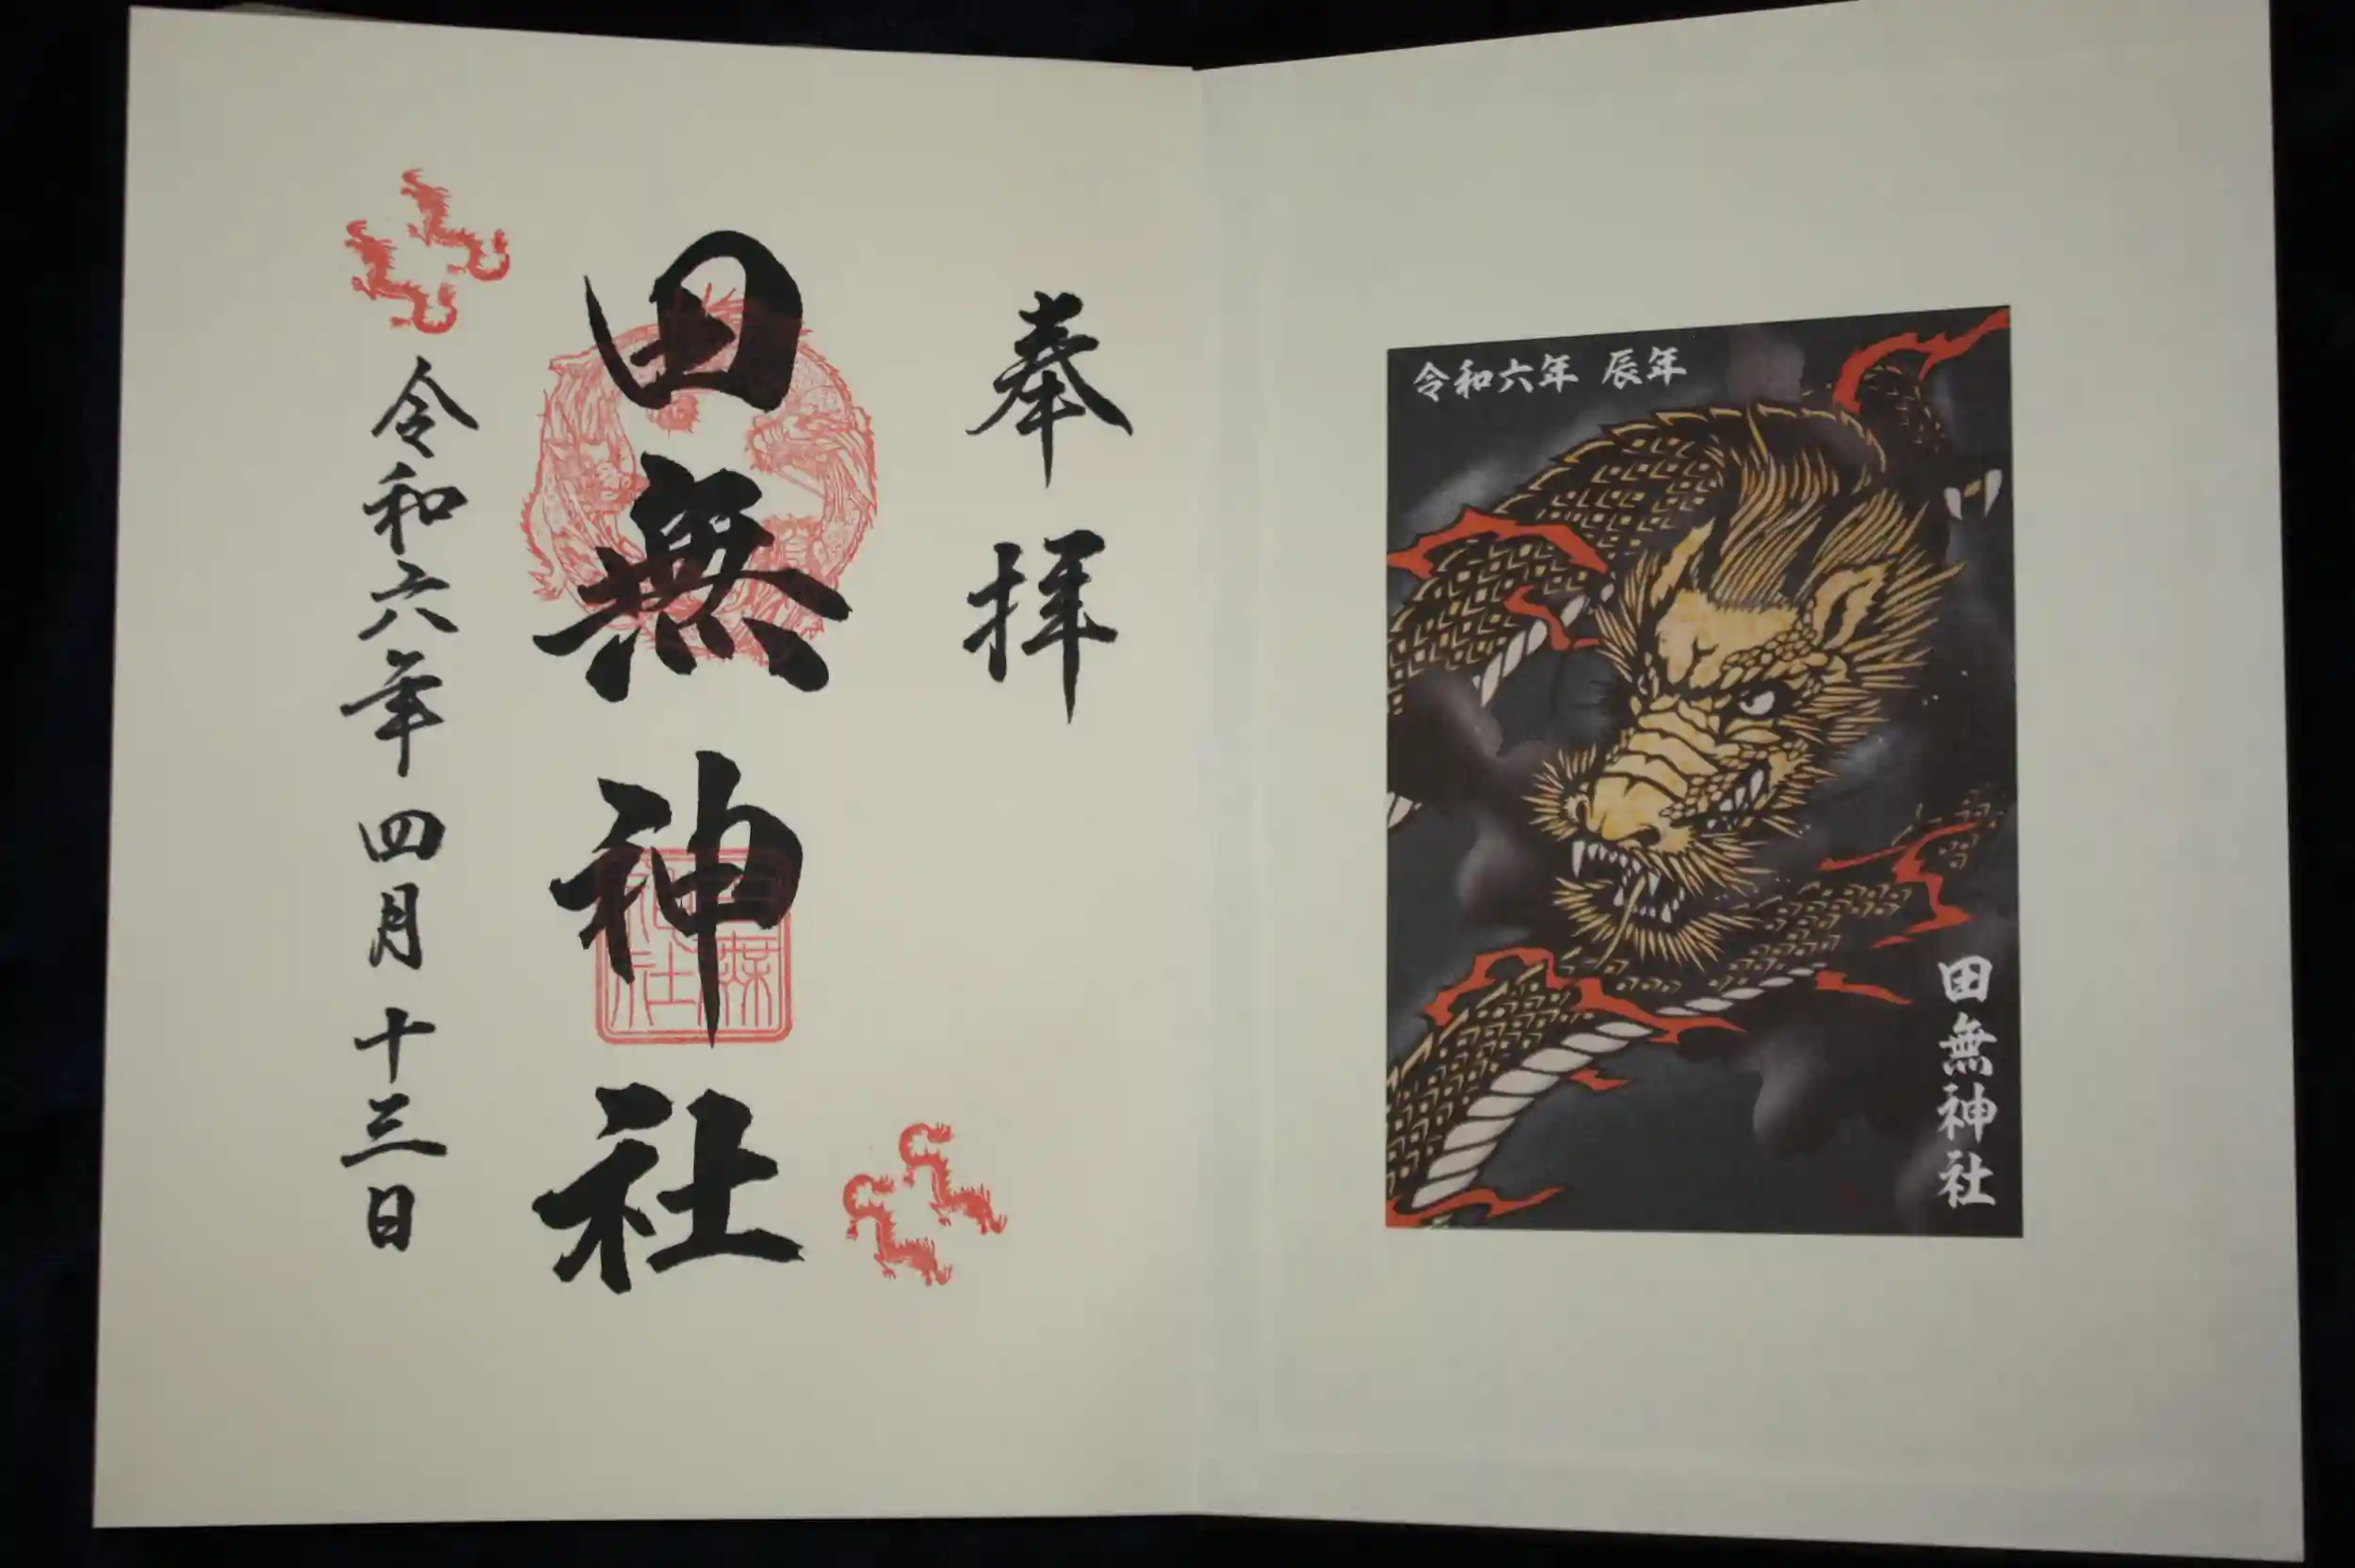 令和六年 辰年
田無神社
奉拝
田無神社
令和六年四月十三日